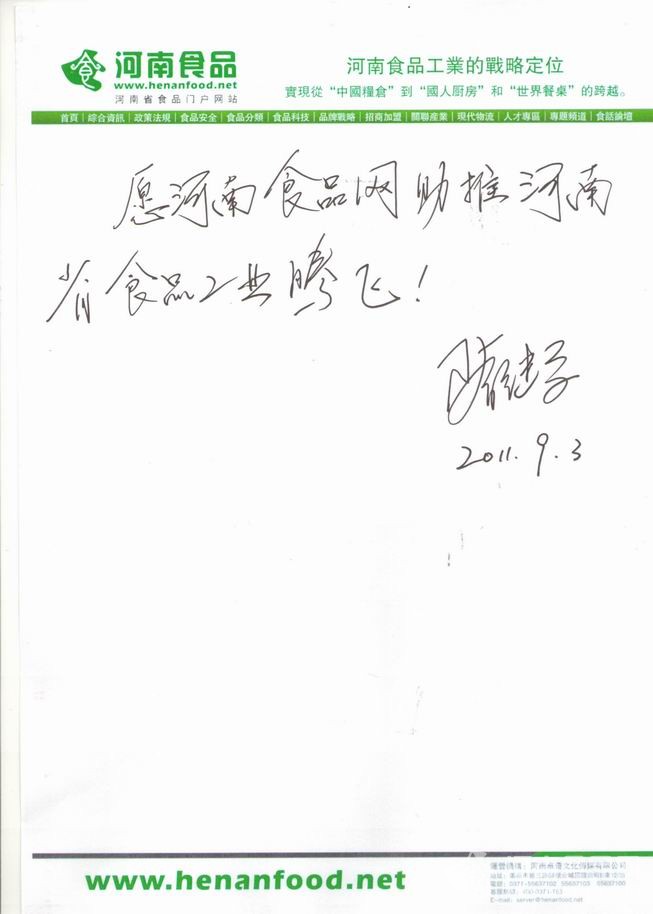 河南食品
www.henanfood.net
河南省食品门户网站
河南食品工業的戰略定位
實現從“中國糧倉”到“國人厨房”和“世界餐桌”的跨越。
首頁|綜合資訊|政策法規|食品安全|食品分類|食品科技|品牌戰略|招商加盟|關聯産業|現代物流|人才專區|專題頻道|食話論壇
愿河南食品网助推河南
省食品工业腾飞!
2011.9.3
www.henanfood.net
電話:0371-55637102 55637103 55637100
E-mail: server@henanfood.net